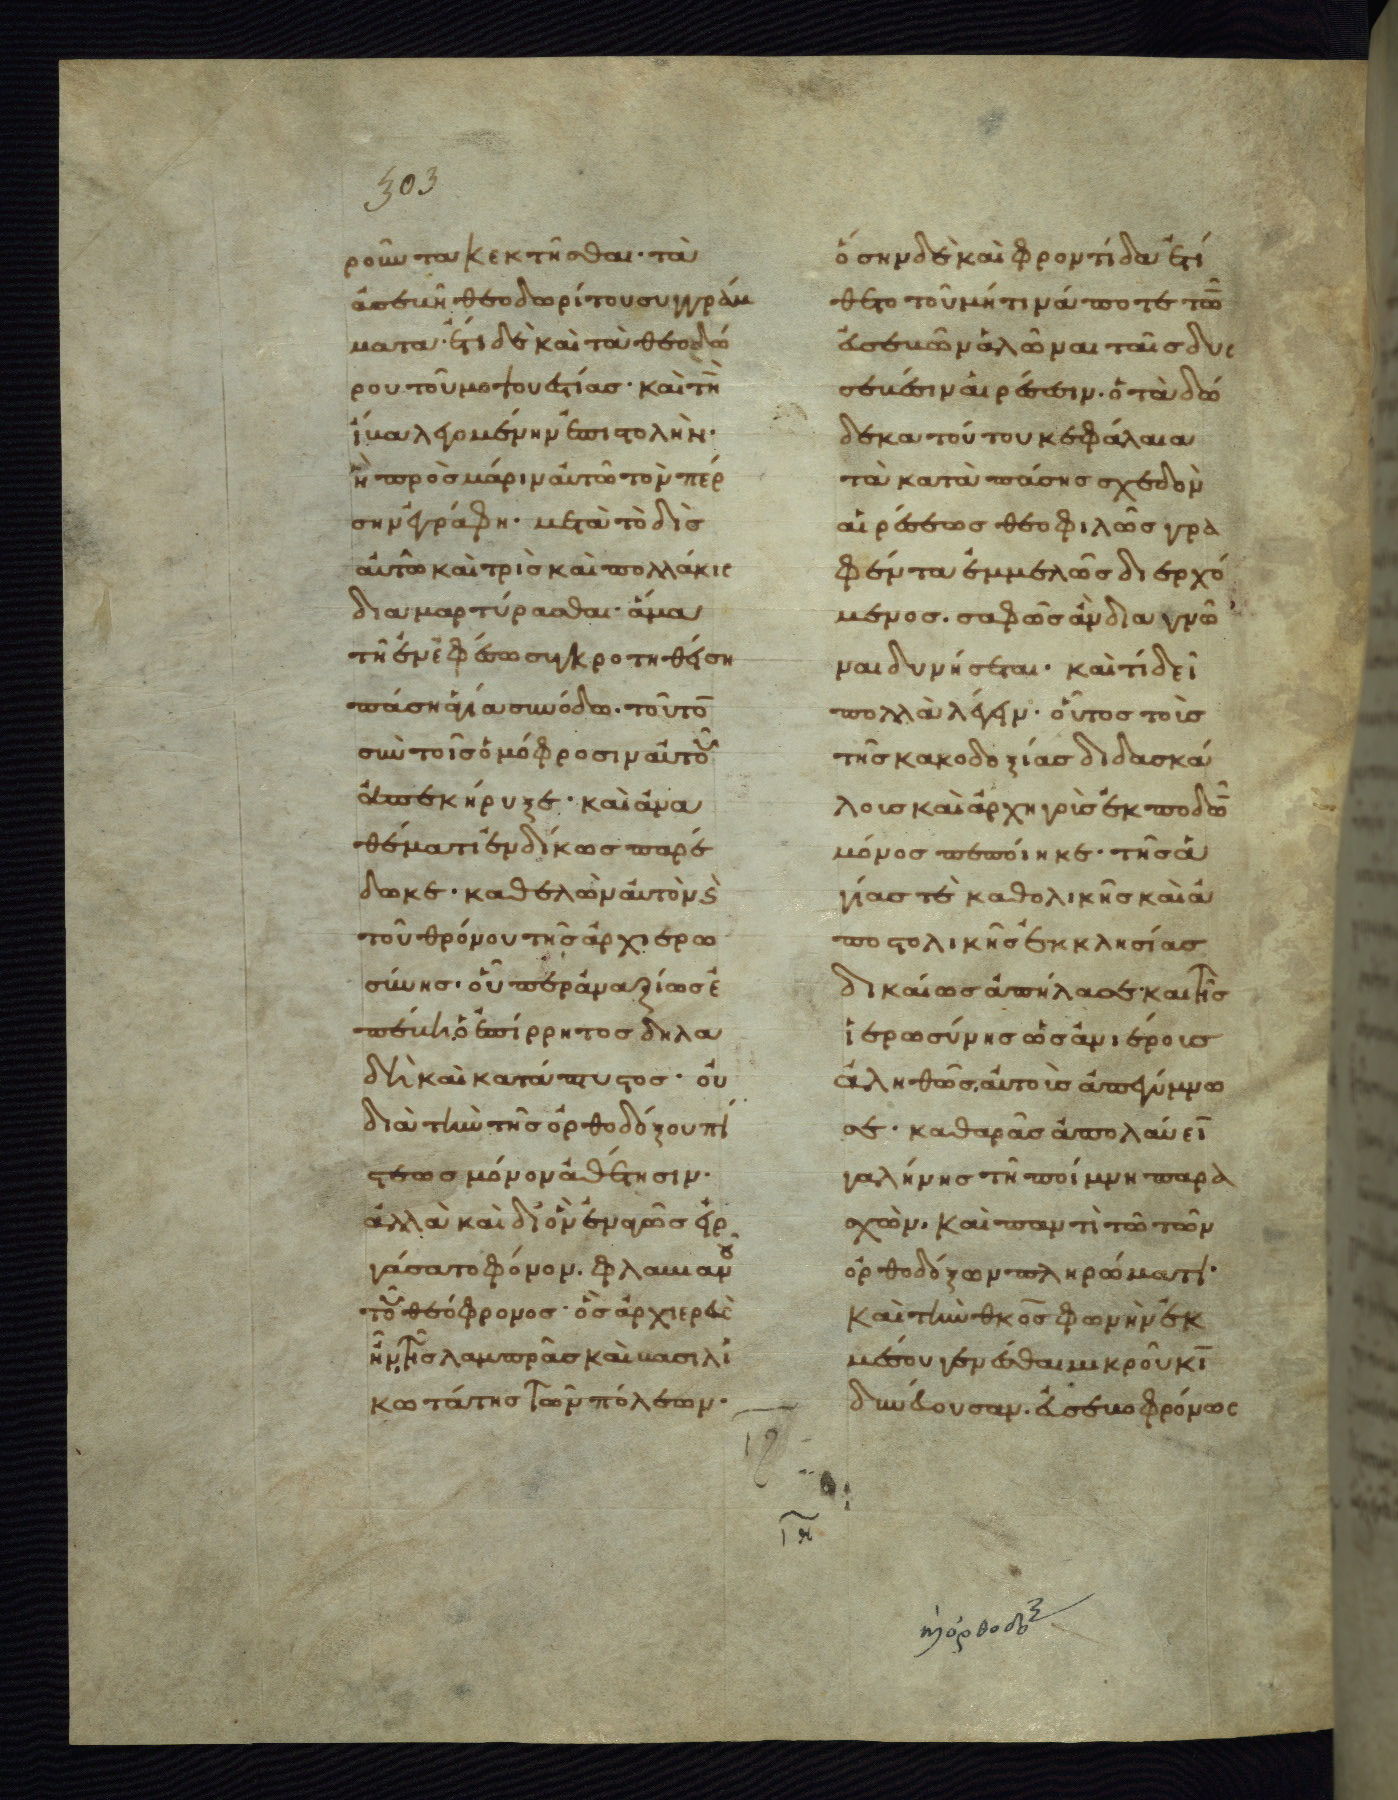 303
ροῦντα κεκτῆσθαι· τὰ
ἀσεβῆ θεοδωρίτου συγγράμ
ματα· ἔτι δὲ καὶ τὰ θεοδώ
ρου τοῦ μοψουεστίας· καὶ τὴν
ἴβα λεγομένην ἐπιστολὴν·
ἣ πρὸς μάριν αὐτῶ τὸν πέρ
σην ἐγράφη· μετὰ τὸ δὶς
αὐτῶ καὶ τρὶς καὶ πολλάκις
διαμαρτύρασθαι· ἅμα
τῆ ἐν ἐφέσω συγκροτηθείση
πάση ἁγία συνόδω· τοῦτον
σὺν τοῖς ὁμόφροσιν αὐτοῦ
ἀπεκήρυξε· καὶ ἀνα
θέματι ἐνδίκως παρέ
δωκε· καθελὼν αὐτὸν καὶ
τοῦ θρόνου τῆς ἀρχιερω
σύνης· οὗπερ ἀναξίως ἐ
πέβη ὁ ἐπίρρητος δηλα
δὴ καὶ κατάπτυστος· οὐ
διὰ τὴν τῆς ὀρθοδόξου πί
στεως μόνον ἀθέτησιν·
ἀλλὰ καὶ δι' ὃν ἐναγῶς εἰρ
γάσατο φόνον· φλαβιανοῦ
τοῦ θεόφρονος· ὃς ἀρχιερεὺς
ἦν τῆς λαμπρᾶς καὶ βασιλι
κωτάτης τῶν πόλεων·
ὅσην δὲ καὶ φροντίδα ἐτί
θετο τοῦ μή τινά ποτε τῶν
εὐσεβῶν ἁλῶναι ταῖς δυσ
σεβέσιν αἱρέσεσιν· ὁ τὰ δώ
δεκα τούτου κεφάλαια
τὰ κατὰ πάσης σχεδὸν
αἱρέσεως θεοφιλῶς γρα
φέντα ἐμμελῶς διερχό
μενος· σαφῶς ἂν διαγνῶ
ναι δυνήσεται· καὶ τί δεῖ
πολλὰ λέγειν· οὗτος τοὺς
τῆς κακοδοξίας διδασκά
λους καὶ ἀρχηγοὺς ἐκποδὼν
μόνος πεποίηκε· τῆς ἁ
γίας τὲ καθολικῆς καὶ ἀ
ποστολικῆς ἐκκλησίας
δικαίως ἀπήλασε· καὶ τῆς
ἱερωσύνης ὡς ἀνιέρους
ἀληθῶς, αὐτοὺς ἀπεγύμνω
σε· καθαρᾶς ἀπολαύειν
γαλήνης τῆ ποίμνη παρα
σχὼν· καὶ παντὶ τῶ τῶν
ὀρθοδόξων πληρώματι·
καὶ τὴν θκοσ φωνὴν ἐκ
μέσου γενέσθαι μικροῦ κιν
δυνεύουσαν· εὐσεβοφρόνως
ιη
ἡ ὀρθοδοξ